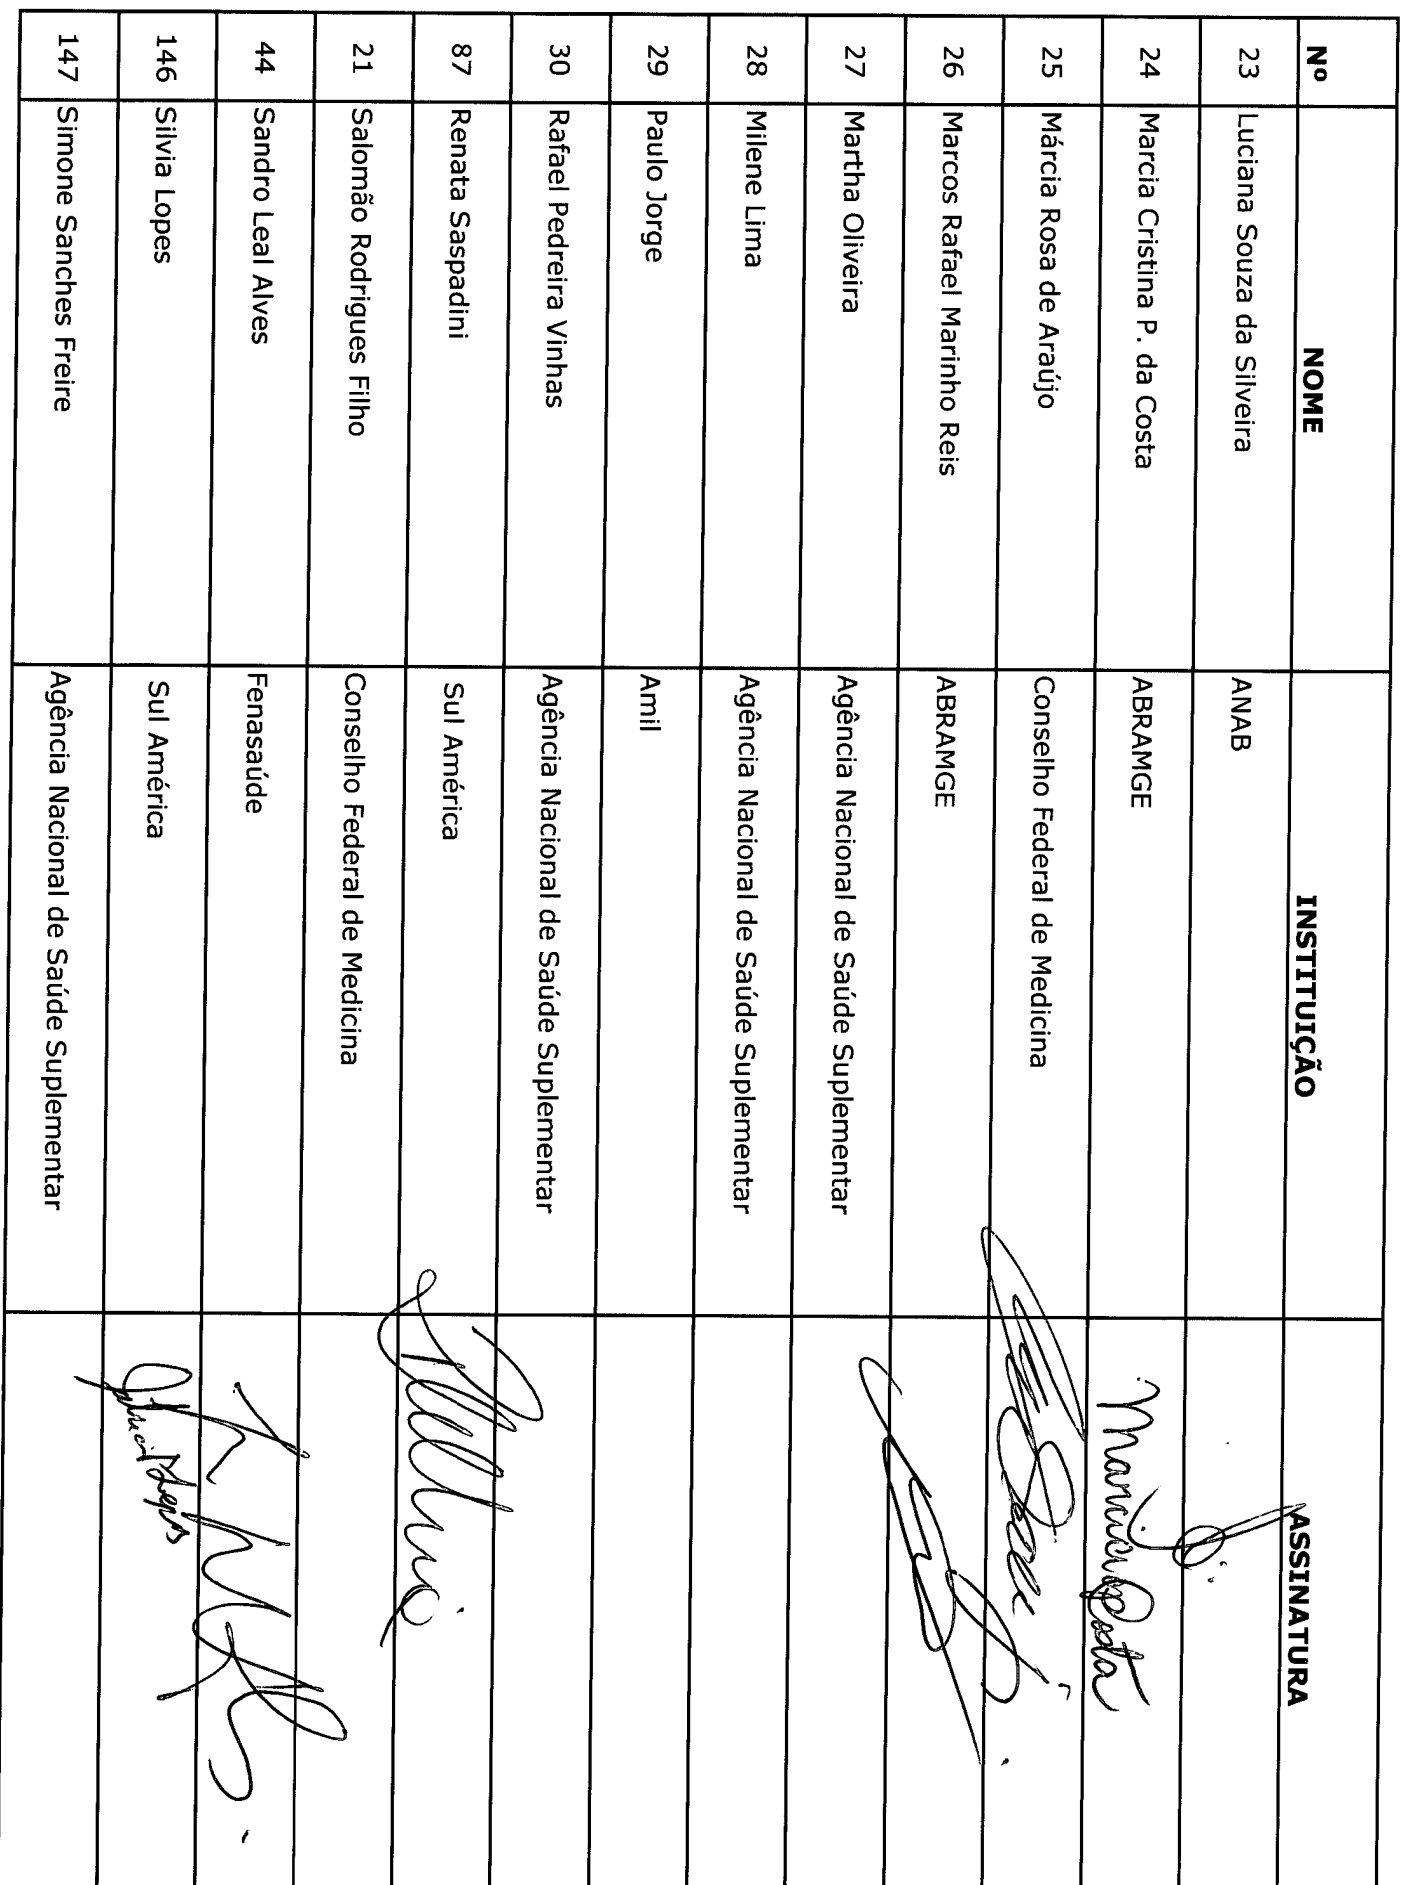 Nº NOME INSTITUIÇÃO ASSINATURA
23 Luciana Souza da Silveira ANAB
24 Marcia Cristina P. da Costa ABRAMGE Marcia Costa
25 Márcia Rosa de Araújo Conselho Federal de Medicina
26 Marcos Rafael Marinho Reis ABRAMGE
27 Martha Oliveira Agência Nacional de Saúde Suplementar
28 Milene Lima Agência Nacional de Saúde Suplementar
29 Paulo Jorge Amil
30 Rafael Pedreira Vinhas Agência Nacional de Saúde Suplementar
87 Renata Saspadini Sul América
21 Salomão Rodrigues Filho Conselho Federal de Medicina
44 Sandro Leal Alves Fenasaúde
146 Silvia Lopes Sul América Lopes
147 Simone Sanches Freire Agência Nacional de Saúde Suplementar